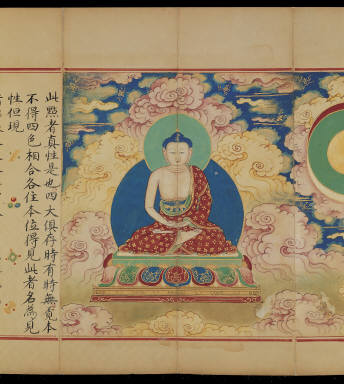 此點者真性是也四大俱存時有時無覓本
不得四色相合各住本位得見此者名為見
性但現